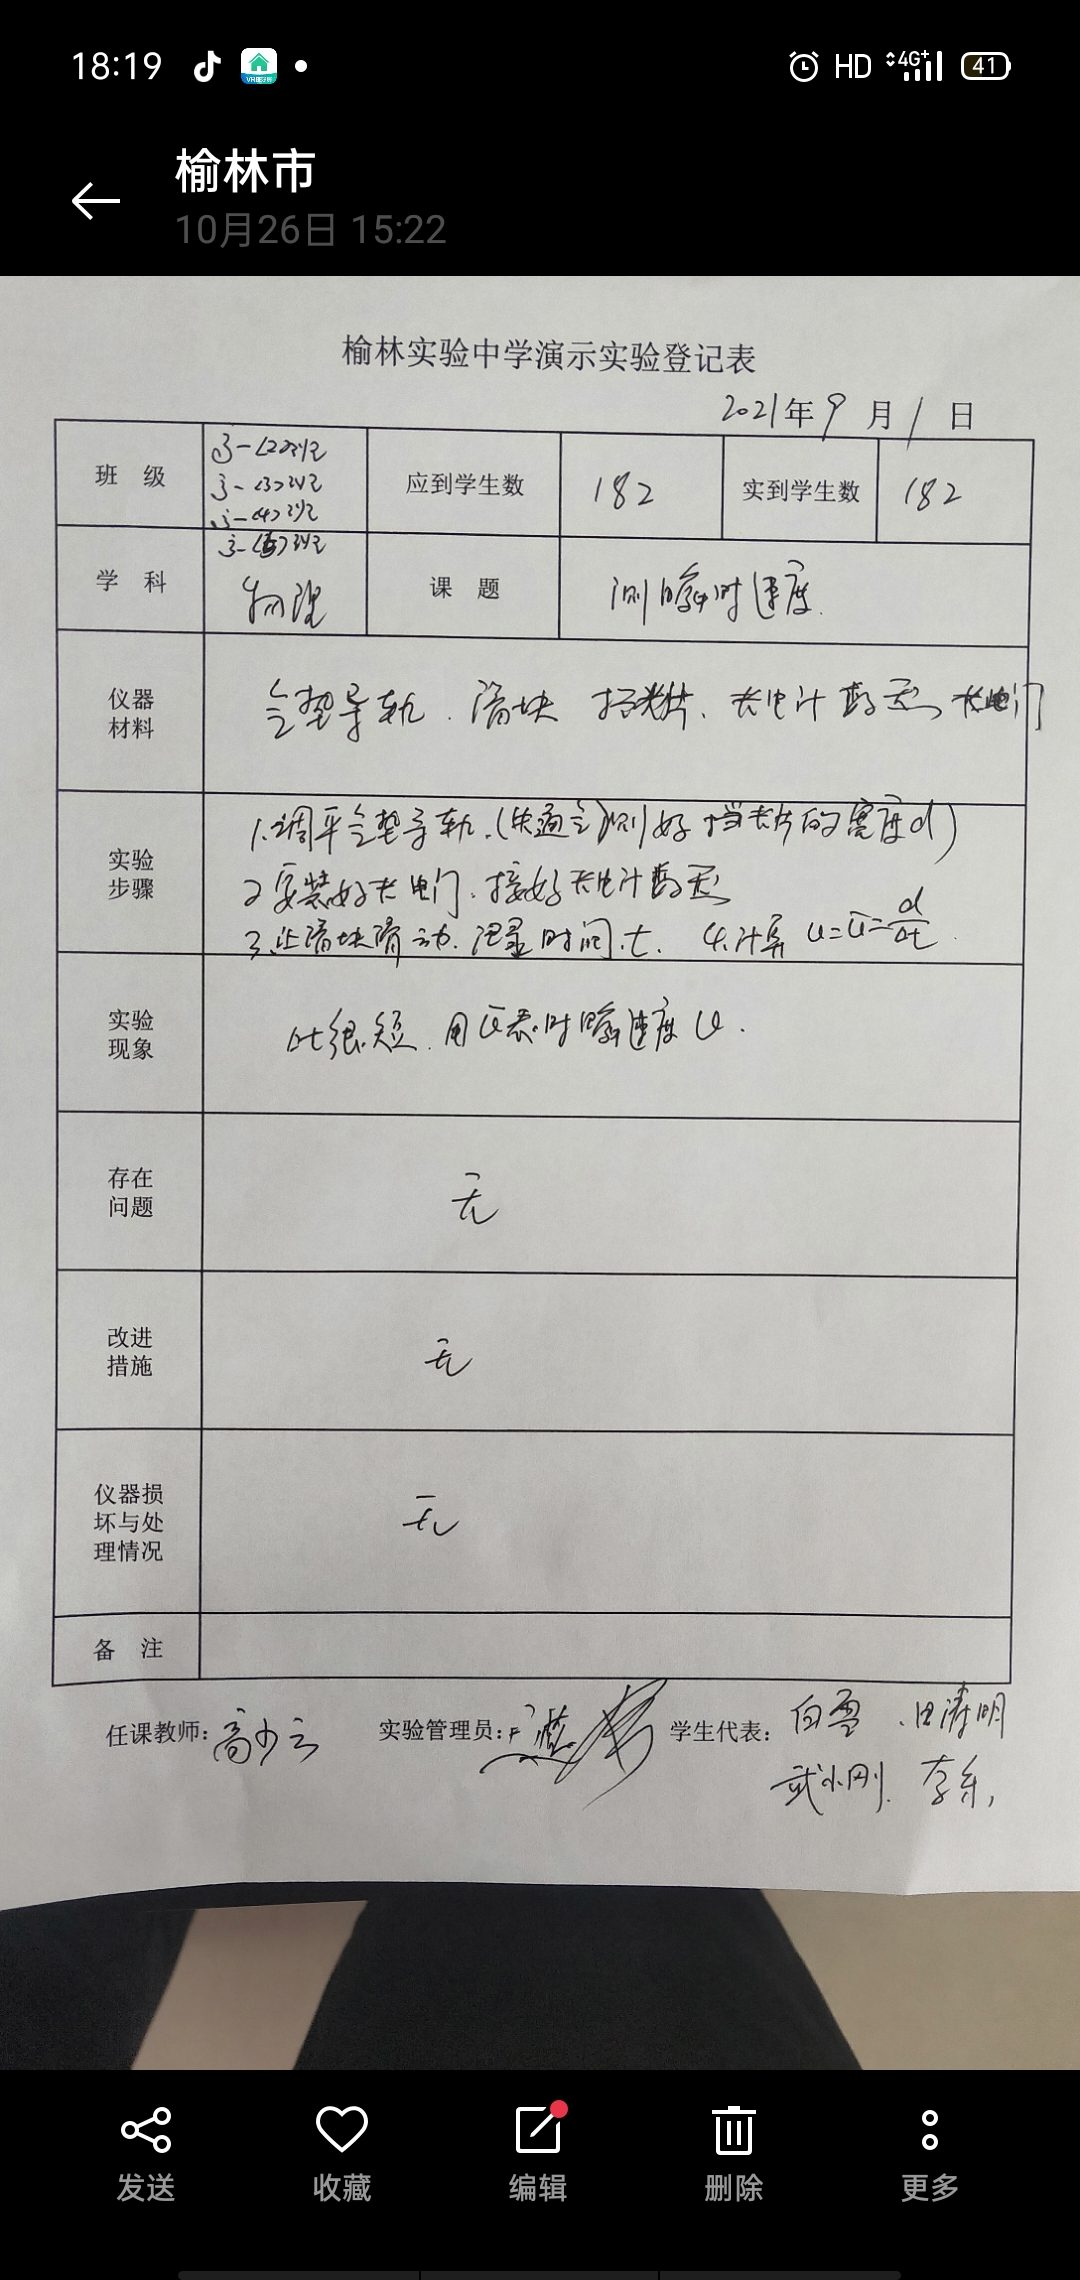 18:19
HD 4G+ 41
榆林市
10月26日 15:22
榆林实验中学演示实验登记表
2021年9月1日
班 级
应到学生数 182 实到学生数 182
学 科 物理 课 题 测瞬时速度.
仪器
材料
气垫导轨. 滑块 挡光片、光电计数器、光电门
实验
步骤
1.调平气垫导轨.(先通气)测好挡光片的宽度d)
2 安装好光电门.接好光电计数器
3.让滑块滑动.记录时间t. 4.计算 υ=ῡ=d/Δt.
实验
现象
Δt很短.用ῡ表时瞬速度υ.
存在
问题
无
改进
措施
无
仪器损
坏与处
理情况
无
备 注
任课教师:高少云 实验管理员: 学生代表:白雪、田涛明
武小刚. 李东,
发送 收藏 编辑 删除 更多